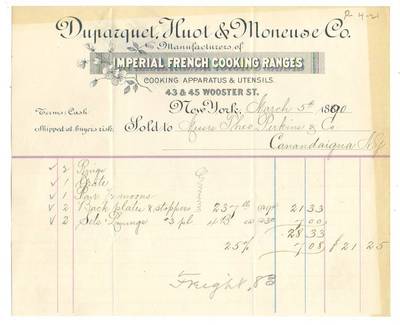 R 4-21
Duparquet, Huot & Moneuse Co.
Manufacturers of
IMPERIAL FRENCH COOKING RANGES
COOKING APPARATUS & UTENSILS.
43 & 45 WOOSTER ST.
New York, March 5th 1890
Terms: Cash
Shipped at buyers risk.
Sold to Messrs Theo. Perkins & Co
Canandaigua N.Y.
✓ 2 Rings
✓ 1 Grate
✓ 1 Pair
✓ 2 Back plates & stoppers 237 lb @ 9 21 33
✓ 2 Sets 3 pl 7 00
28 33
25% 7 08 $ 21 25
Freight .83